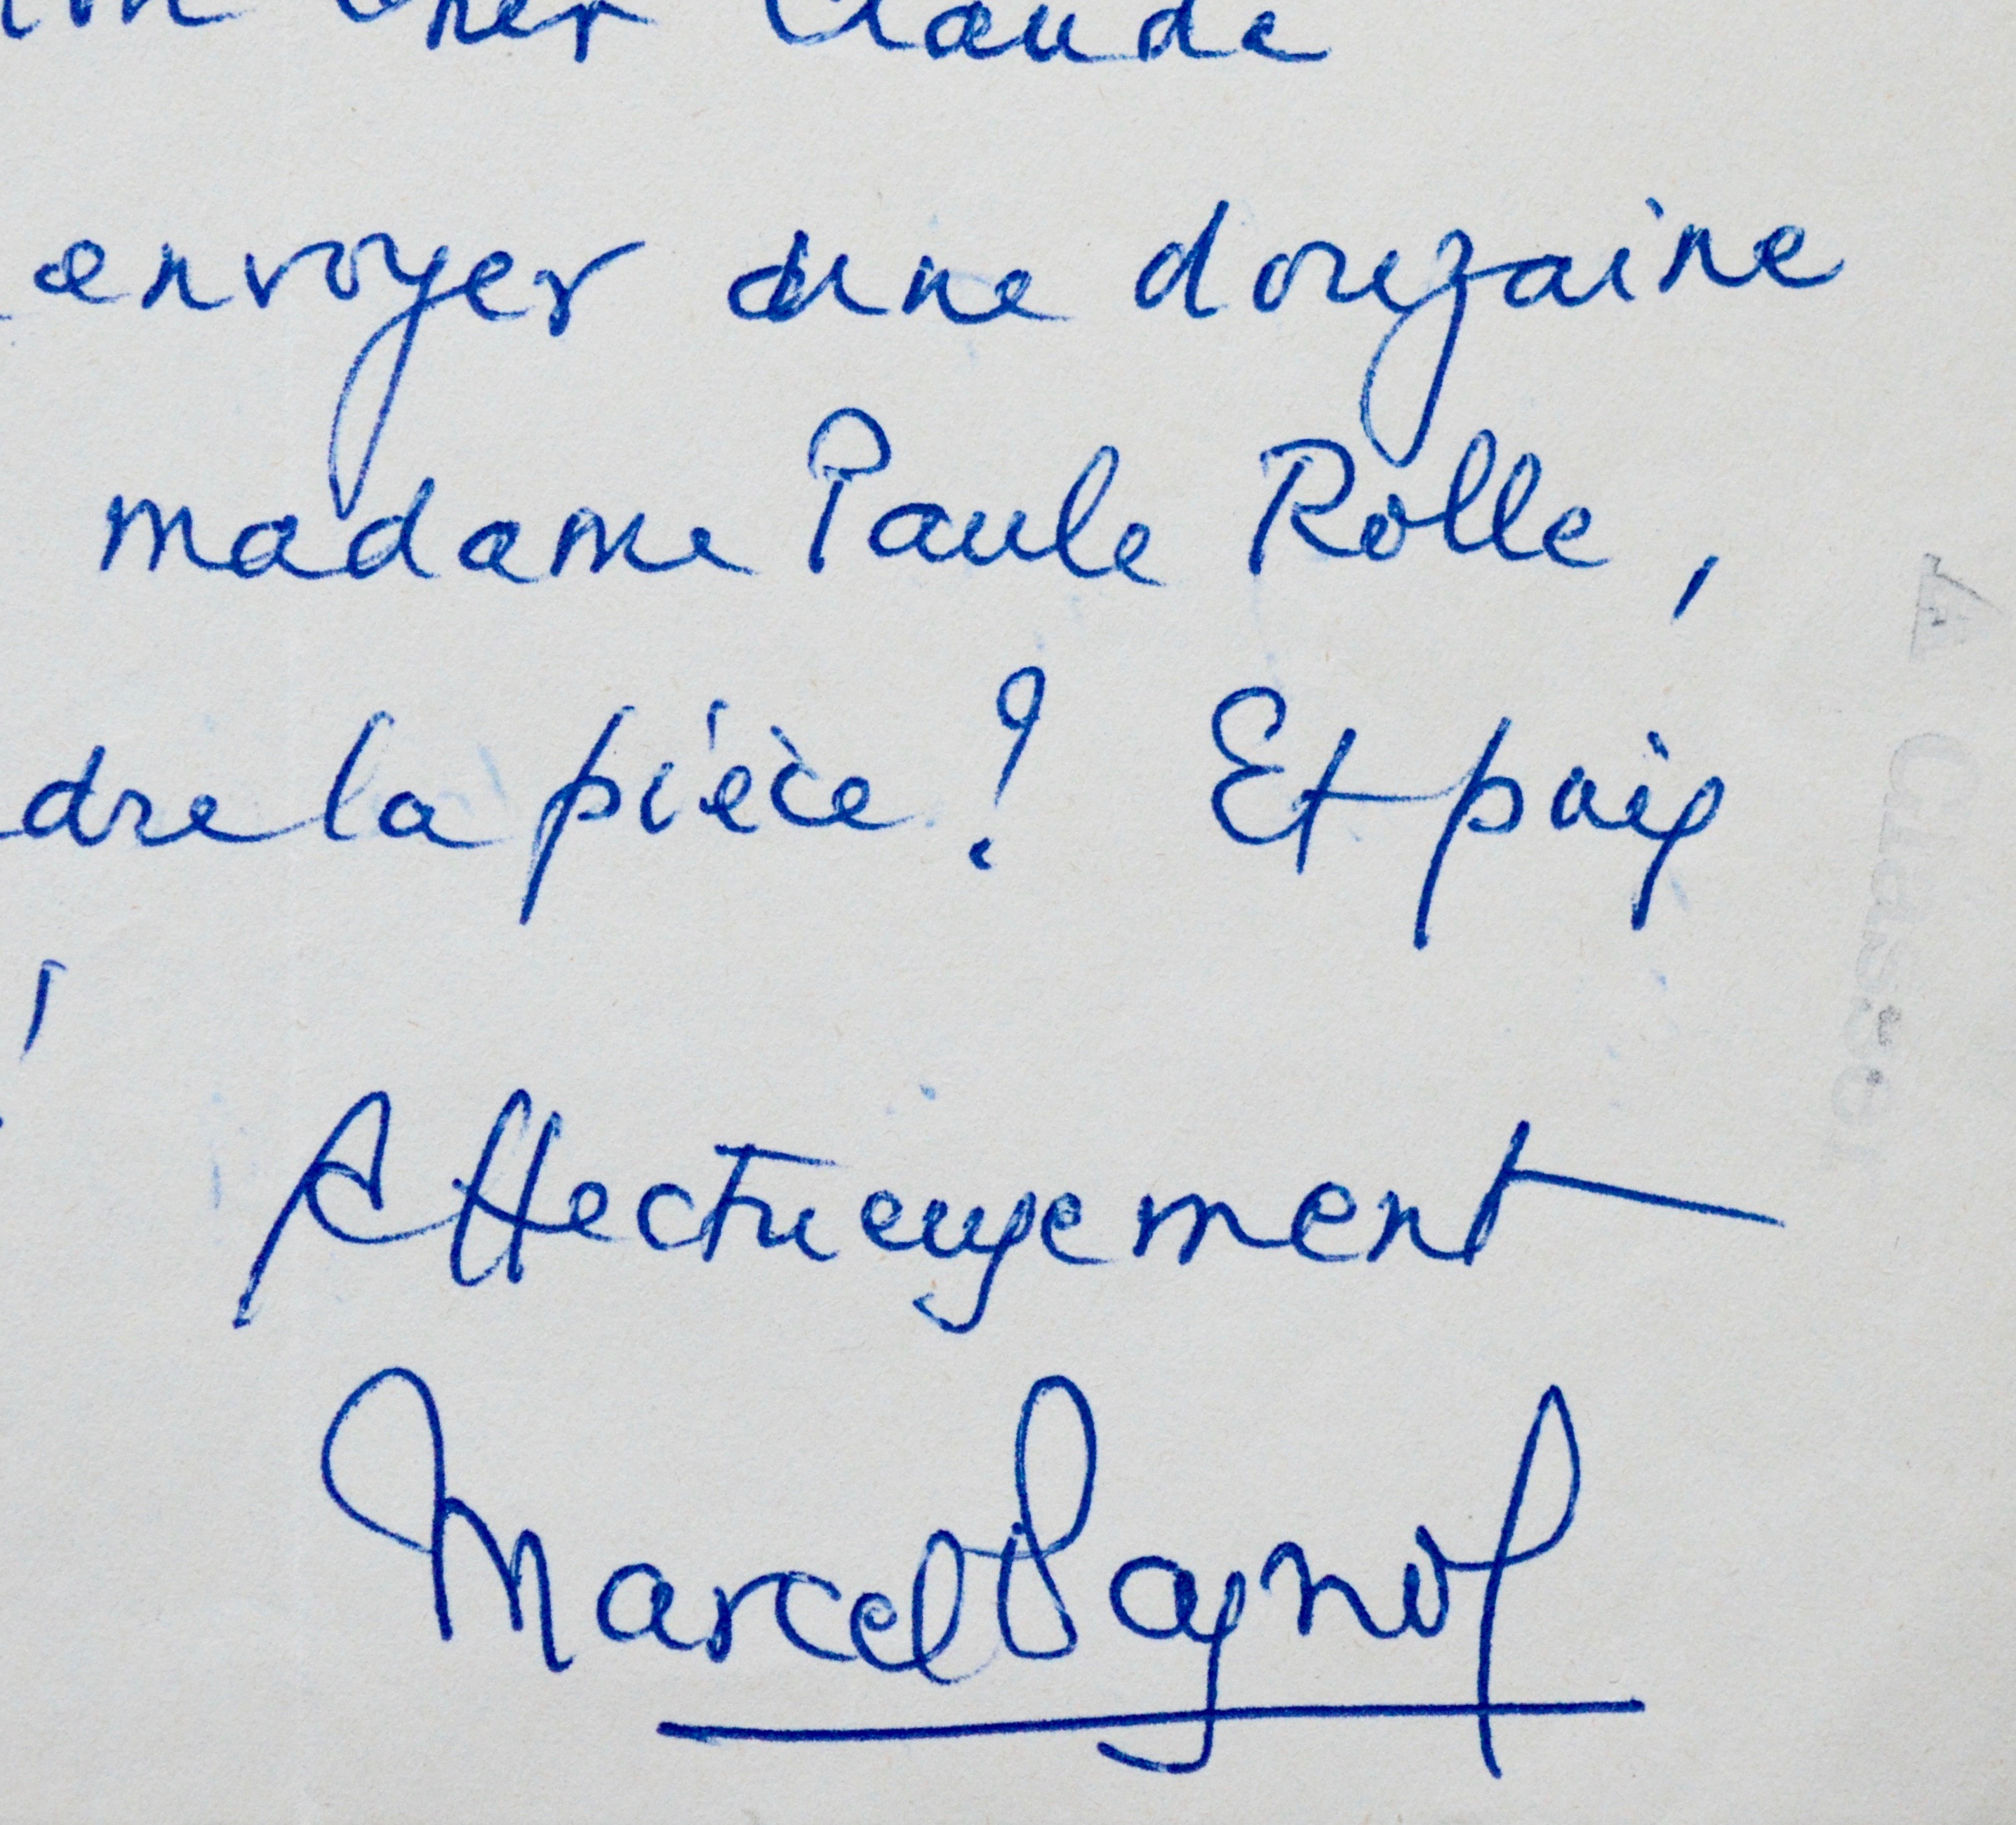 mon cher Claude
envoyer une douzaine
madame Paule Rolle,
dre la pièce? Et puis
!
Affectueusement
Marcel Pagnol